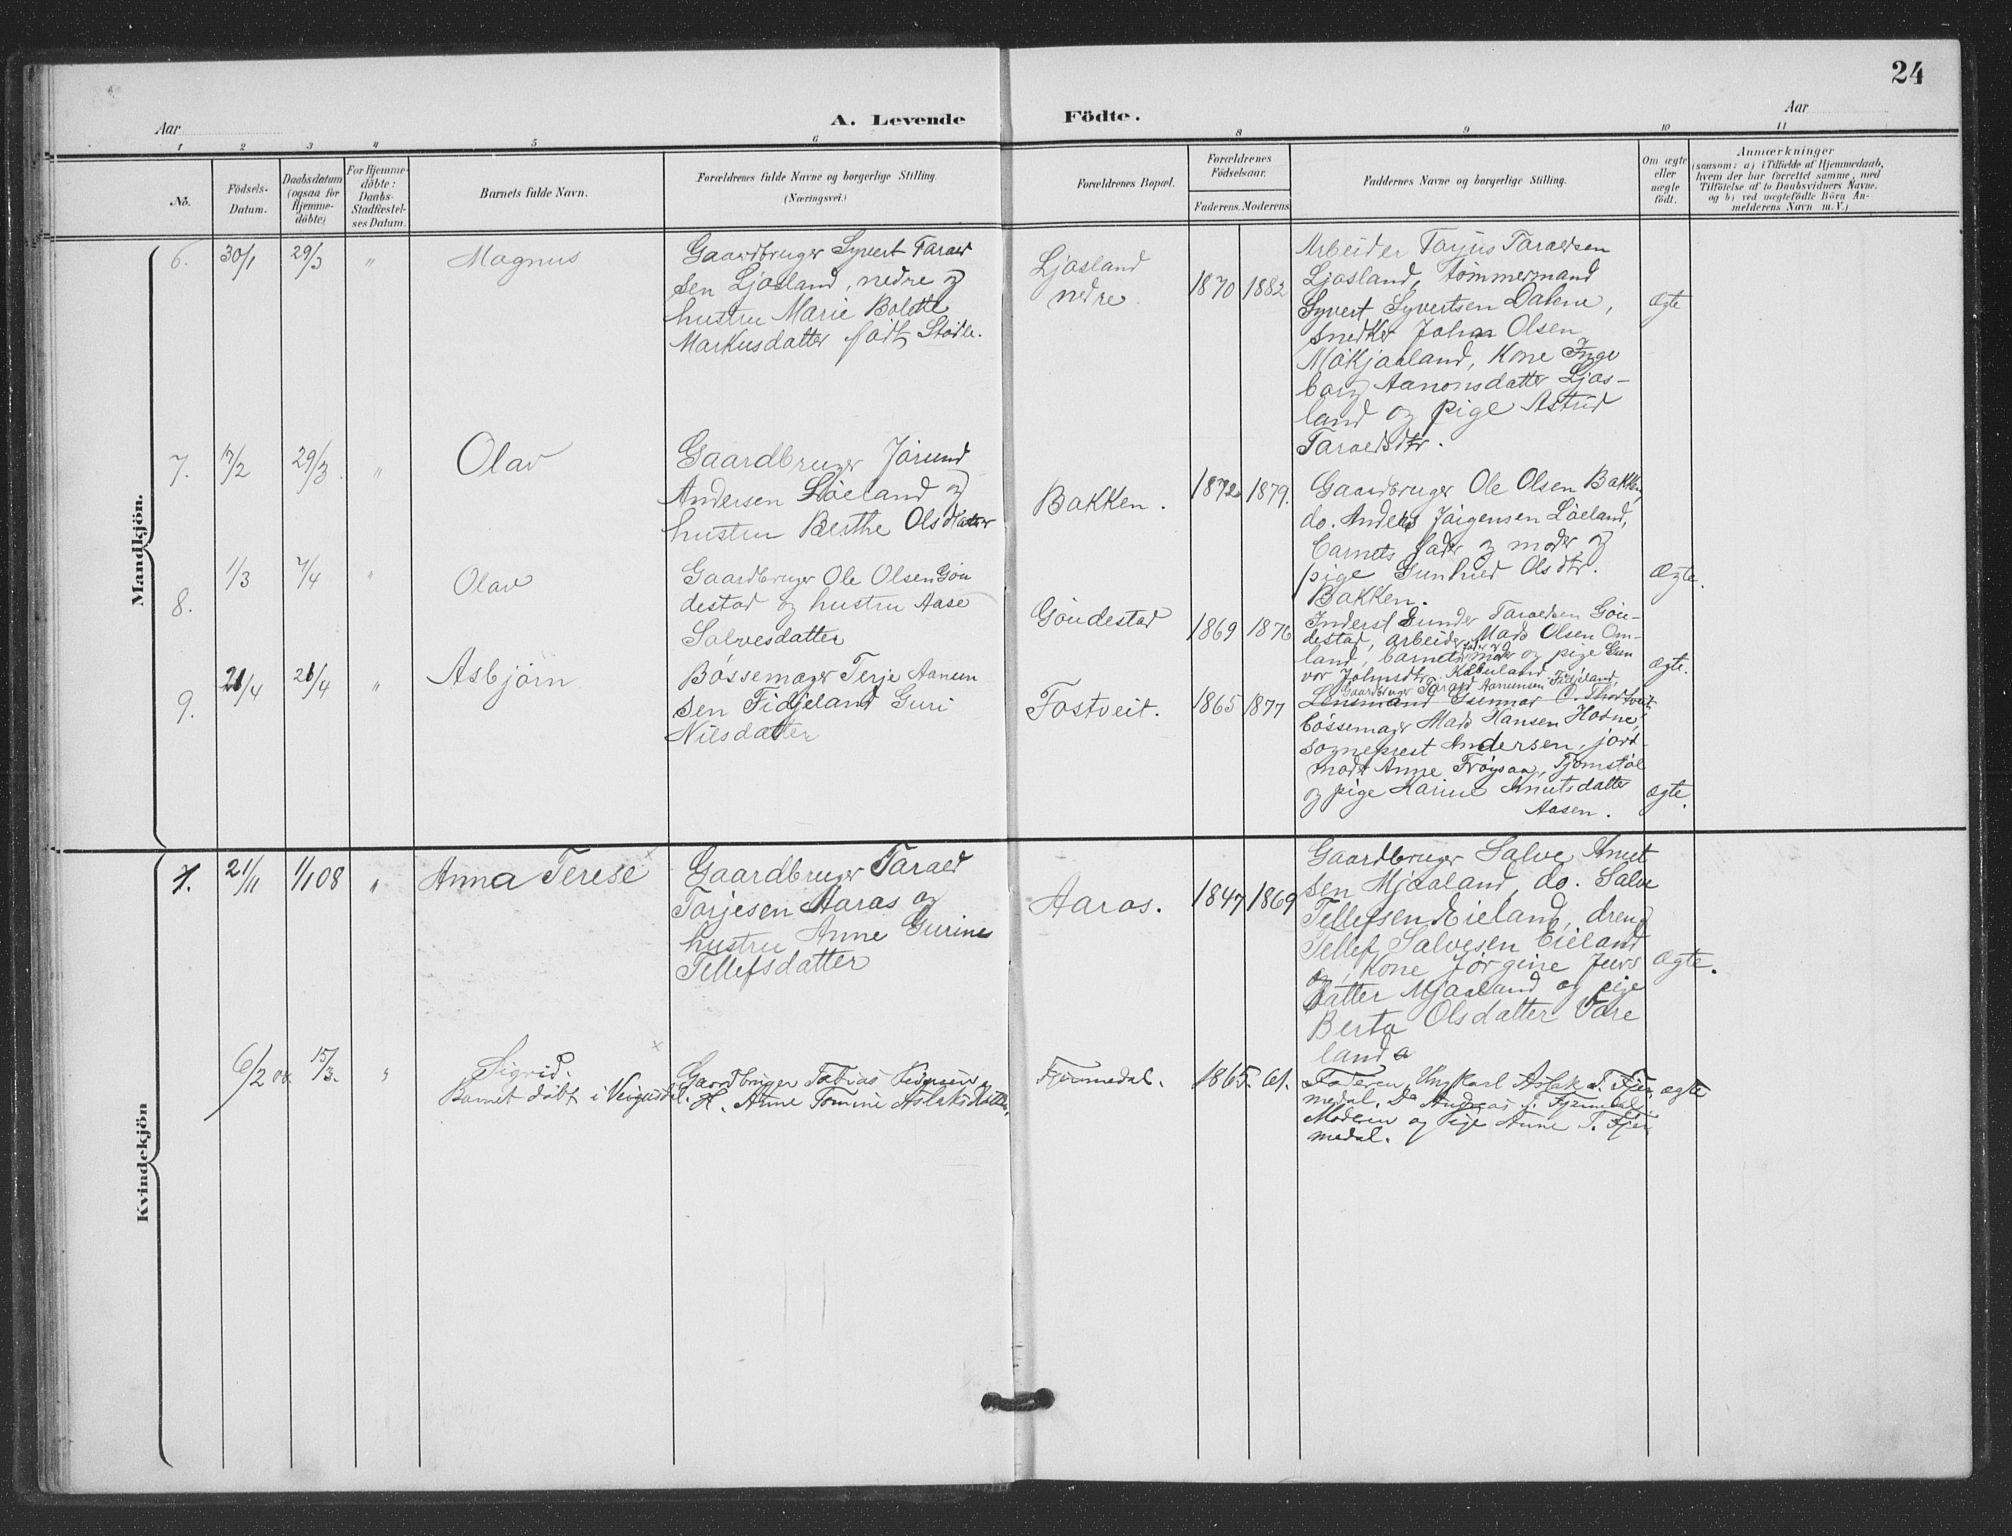 24
Aar
A. Levende Födte.
Aar
1 2 3 4 5 6 8 9 10 11
No.
Födsels-
Datum.
Daabsdatum
(ogsaa for
Hjemme-
döbte)
For Hjemme-
döbte:
Daabs-
Stadfæstel-
ses Datum.
Barnets fulde Navn.
Forældrenes fulde Navne og borgerlige Stilling
(Næringsvei.)
Forældrenes Bopæl.
Forældrenes
Födselsaar.
Faderens. Moderens
Faddernes Navne og borgerlige Stilling.
Om ægte
eller
uægte
födt.
Anmærkninger
(saasom: a) i Tilfælde af Hjemmedaab,
hvem der har forrettet samme, med
Tilföielse af to Daabsvidners Navne.
og b) ved uægtefödte Börn An-
melderens Navn m. V.)
Mandkjön.
6. 30/1 29/3 " Magnus
Gaardbruger Syvert Tarald
sen Ljosland, nedre og
hustru Marie Bolette
Markusdatter født Støile.
Ljosland
nedre.
1870 1882
Arbeider Torjus Taraldsen
Ljosland, tømmermand
Syvert Syvertsen Dalene,
snedker Johan Olsen
Mokjaaland, Kone Inge
borg Aanonsdatter Ljos-
land og pige Astrid
Taraldsdtr.
ægte
7. 17/2 29/3. " Olav
Gaardbruger Jörund
Andersen Løeland og
hustru Berthe Olsdatter
Bakken.
1872 1879.
Gaardbruger Ole Olsen Bakken
do. Anders Jörgensen Løeland,
barnets fader og moder og
pige Gunhild Olsdtr.
Bakken.
Ægte.
8. 1/3 7/4 " Olav
Gaardbruger Ole Olsen Gou
destad og hustru Aase
Salvesdatter
Goudestad
1869 1876
Inderst Gunder Taraldsen Gou-
destad, arbeider Mads Olsen Om-
land, barnets fader og moder og pige Gun
vor Johnsdtr.
ægte.
9. 21/4 26/4 " Asbjørn
Bøssemager Terje Aanun
sen Fidjeland Guri
Nilsdatter
Fostveit.
1865 1877
Gaardbruger Tarald Aanunsen Fidjeland,
Lensmand Gunnar O. Thortveit
bøssemager Mads Hansen Hodne,
sogneprest Andersen, jord-
mor Anne Frøysaa, Tjomstøl
og pige Karine Knutsdatter
Aasen.
ægte.
Kvindekjön
1. 21/11 1/1 08 " Anna Terese ×
Gaardbruger Tarald
Torjesen Aaras og
hustru Anne Gurine
Tellefsdatter
Aaros.
1847 1869
Gaardbruger Salve Knut
sen Mjaaland, do. Salve
Tellefsen Eieland, dreng
Tellef Salvesen Eieland
og, Kone Jørgine Jens
datter Mjaaland og pige
Berta Olsdatter Vare
land
ægte.
6/2 08 15/3. " Sigrid. ×
Barnet døbt i Veigusdal.
Gaardbruger Tobias
H. Anne Tomine Aslaksdatter,
Fjermedal.
1865. 61.
Faderen, Ungkarl Aslak T. Fjer
medal, Do Andreas T. Fjermedal
Moderen og Pige Anne T. Fjer
medal.
ægte